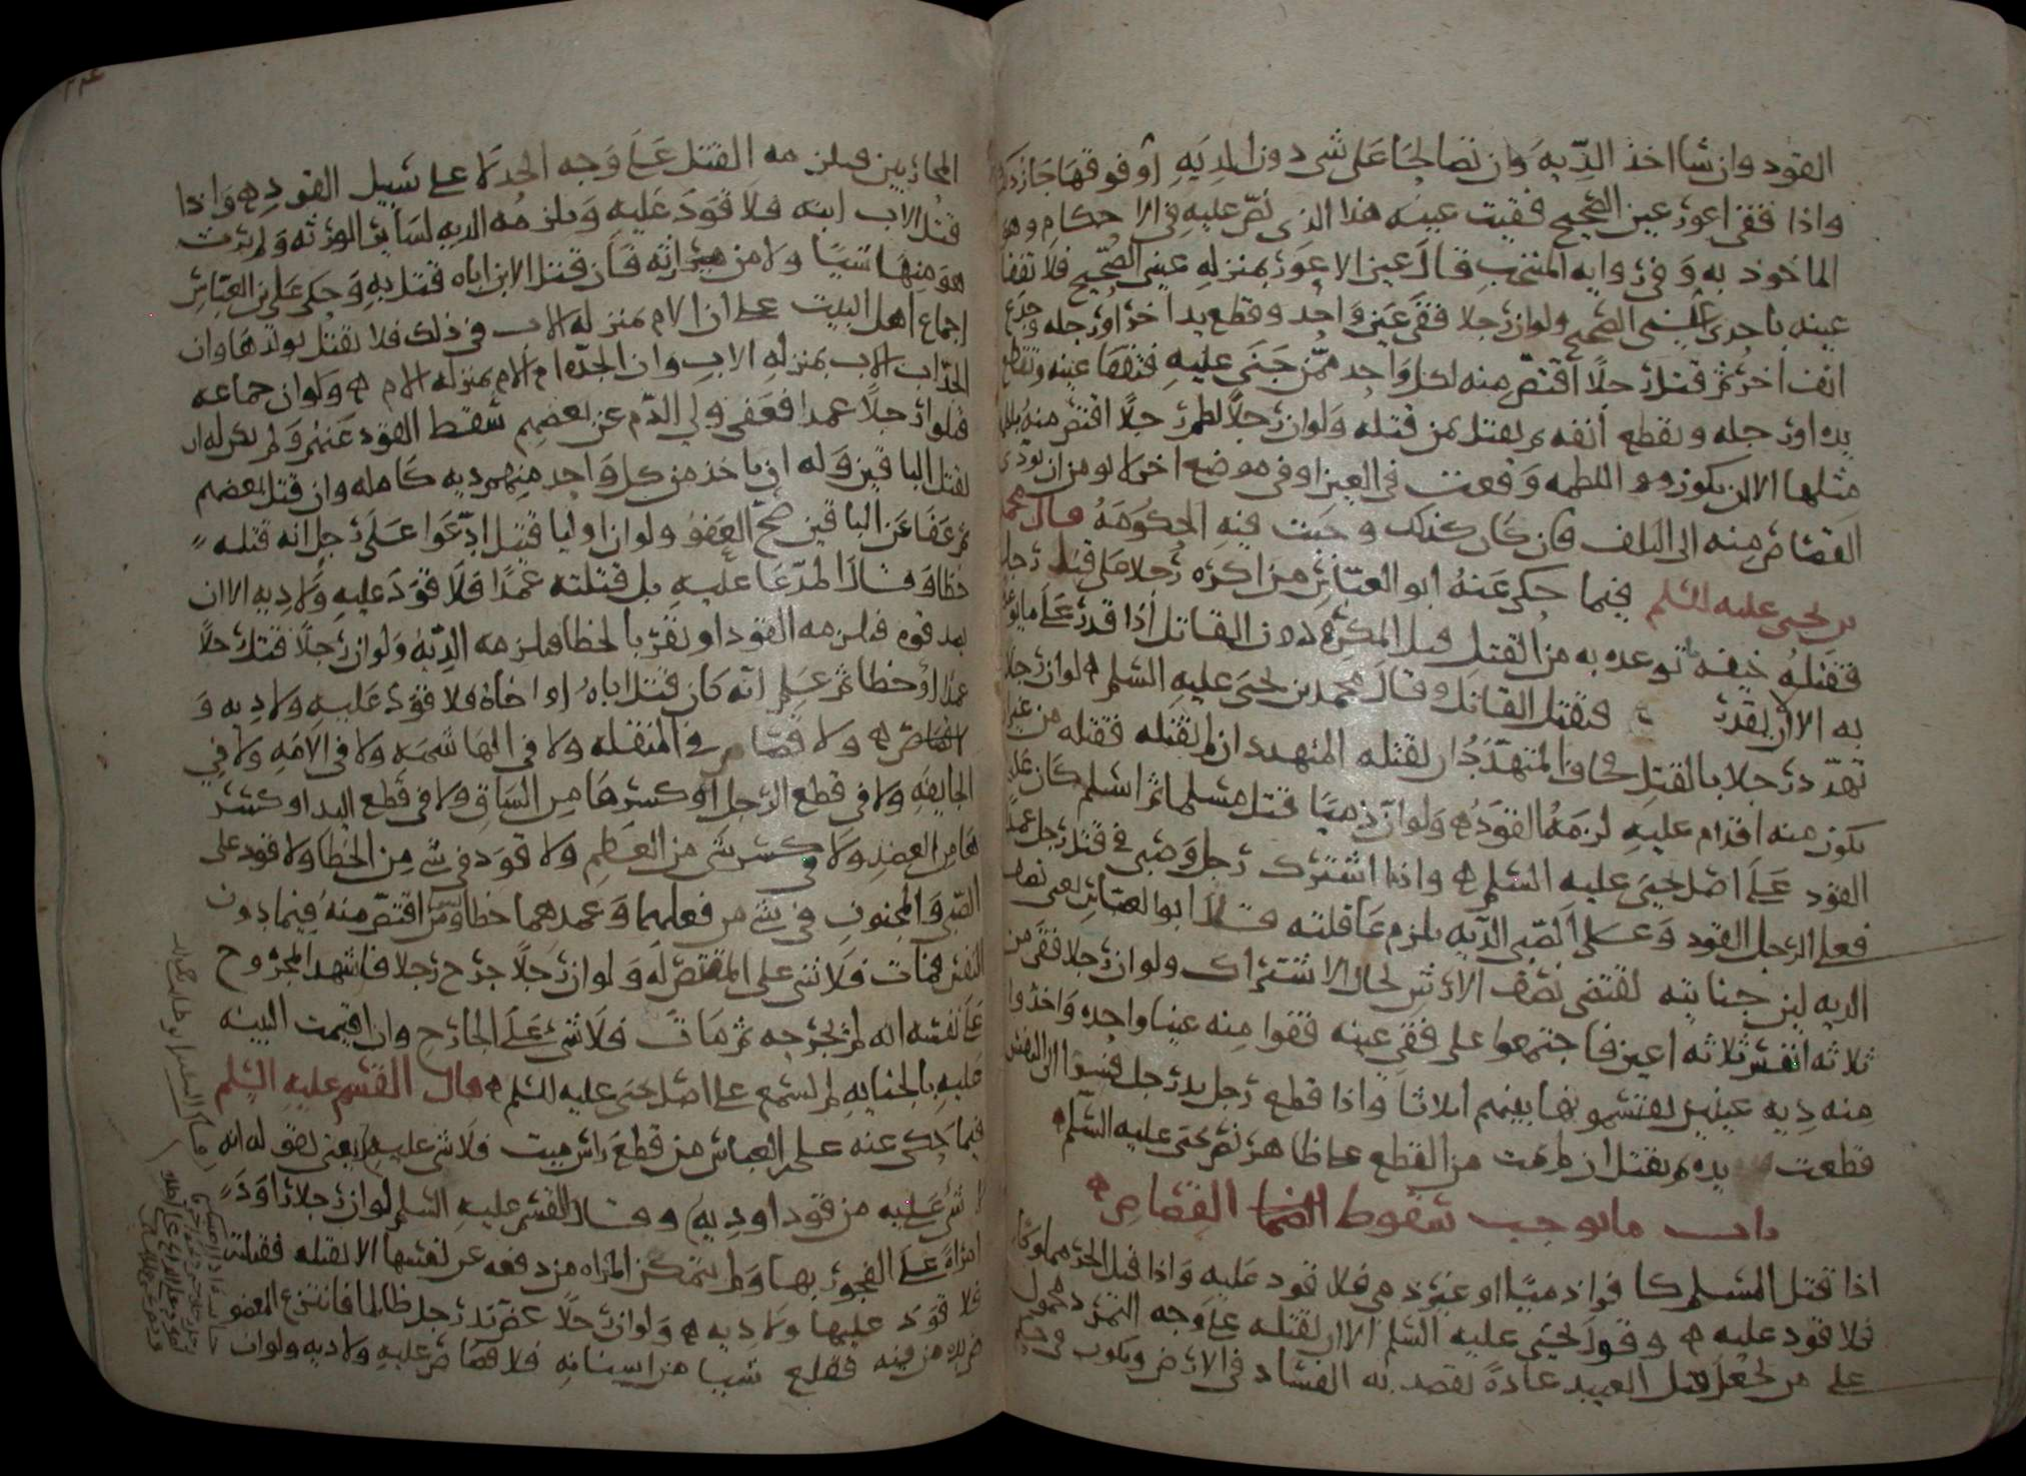 القود وان شا اخذ الدّيه وان تصالحا على شى دون الديه او فوقها جاز ذلك
واذا فقى اعور عين الصحيح فقيت عينه هذا الذى نصّ عليه فى الاحكام وهو
الماخوذ به وفى روايه المنتخب قال عين الاعور بمنزله عينى الصحيح فلا تفقا
عينه باحدى عينى الصحيح ولو ان رجلا فقى عين واحد وقطع يد اخر او رجله وجدع
انف اخر ثم قتل رجلًا اقتص منه لكل واحد ممّن جنى عليه فتفقا عينه وتقطع
يده او رجله ويقطع انفه ثم يقتل بمن قتله ولو ان رجلًا لطم رجلًا اقتص منه بلطمه
مثلها الا ان يكون اللطمه وقعت فى العين او فى موضع اخر لا يومن ان يودى
القصاص منه الى التلف فان كان كذلك وجبت فيه الحكومه قال محمد
بن يحيى عليه السلم فيما حكى عنه ابو العبّاس من اكره رجلا على قتل رجل
فقتله خيفه ما توعده به من القتل قتل المكرِه دون القاتل اذا قدر على ما توعد
به الا ان يقدر فيقتل القاتل وقال محمد بن يحيى عليه السلم لو ان رجلًا
تهدّد رجلا بالقتل فخاف المتهدَّد ان يقتله المتهدد ان لم يقتله فقتله من غير ان
يكون منه اقدام عليه لزمه القود ولو ان ذميًا قتل مسلما ثم اسلم كان عليه
القود على اصل يحيى عليه السلم واذا اشترك رجل وصبى فى قتل رجل عمدًا
فعلى الرجل القود وعلى الصّبى الديه يلزم عاقلته قال ابو العباس يعنى نصف
الديه لان جنايته تقتضى نصف الارش لحال الاشتراك ولو ان رجلا فقى من
ثلاثه انفس ثلاثه اعين فاجتمعوا على فقى عينه فقوا منه عينا واحده واخذوا
منه ديه عينين يقتسمونها بينهم اثلاثا واذا قطع رجل يد رجل فسرا الى النفس
قطعت يده ثم يقتل ان لم يمت من القطع على ظاهر نص يحيى عليه السلم
باب ما يوجب سقوط الضما القصاص
اذا قتل المسلم كافرا ذميًا او غير ذمى فلا قود عليه واذا قتل الحر مملوكا
فلا قود عليه وقول يحيى عليه السلم الا ان يقتله على وجه التمرّد محمول
على من يجعل قتل العبيد عادةً يقصد به الفساد فى الارض ويكون فى حكم
المحاربين فيلزمه القتل على وجه الحد لا على سبيل القود واذا
قتل الاب ابنه فلا قود عليه ويلزمه الديه لساير الورثه ولم يرث
هو منها شيًا ولا من ميراثه فان قتل الابن اباه قتل به وحكى على بن العبّاس
اجماع اهل البيت على ان الام بمنزله الاب فى ذلك فلا يقتل بولدها وان
الجدّ اب الاب بمنزله الاب وان الجدّه ام الام بمنزله الام ولو ان جماعه
قتلوا رجلًا عمدا فعفى ولى الدّم عن بعضهم سقط القود عنهم ولم يكن له ان
يقتل الباقين وله ان ياخذ من كل واحد منهم ديه كامله وان قتل بعضهم
ثم عفا عن الباقين صحّ العفو ولو ان اوليا قتيل ادّعوا على رجل انه قتله
خطا وقال المدّعا عليه بل قتلته عمدًا فلا قود عليه ولا ديه الا ان
يصدقوه فيلزمه القود او يقرّ بالخطا فيلزمه الديه ولو ان رجلًا قتل رجلًا
عمدًا او خطا ثم علم انه كان قتل اباه او اخاه فلا قود عليه ولا ديه و
لا قصاص ولا قصاص فى المنقله ولا فى الهاشمه ولا فى الامه ولا فى
الجايفه ولا فى قطع الرجل او كسرها من الساق ولا فى قطع اليد او كسر
ها من العضد ولا فى كسر شى من العظم ولا قود فى شى من الخطا ولا قود على
الصّبى والمجنون فى شى من فعلهما وعمدهما خطا ومن اقتصّ منه فيما دون
النفس فمات فلا شى على المقتص له ولو ان رجلًا جرح رجلا فاشهد المجروح
على نفسه انه لم يجرحه ثم مات فلا شى على الجارح وان اقيمت البينه
عليه بالجنايه لم تسمع على اصل يحيى عليه السلم قال القسم عليه السلم
فيما حكى عنه على بن العباس من قطع راس ميت فلا شى عليه يعنى بقوله انه
لا شى عليه من قود او ديه وقال القسم عليه السلم لو ان رجلا راود
امراه على الفجور بها ولم يتمكن المراه من دفعه عن نفسها الا بقتله فقتلته
فلا قود عليها ولا ديه ولو ان رجلًا عض يد رجل ظالما فانتزع المعضو
ض يده من فيه فقلع شيا من اسنانه فلا قصاص عليه ولا ديه ولو ان